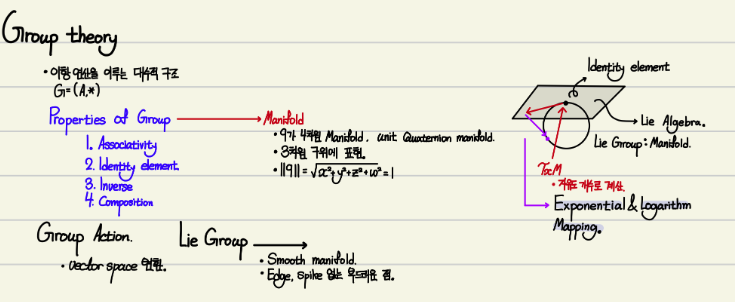 Group theory
• 이항 연산을 이루는 대수적 구조
G=(A,*)
Properties of Group → Manifold
1. Associativity
2. Identity element.
3. Inverse
4. Composition
• q가 4차원 Manifold. unit Quaternion manifold.
• 3차원 구위에 표현.
• ||q|| = √x²+y²+z²+w² = 1
Identity element
Lie Algebra.
Lie Group : Manifold.
TxM
• 자유도 개수로 계산.
Exponential & Logarithm
Mapping.
Group Action.
• Vector space 변환.
Lie Group →
• Smooth manifold.
• Edge, spike 없는 부드러운 점.